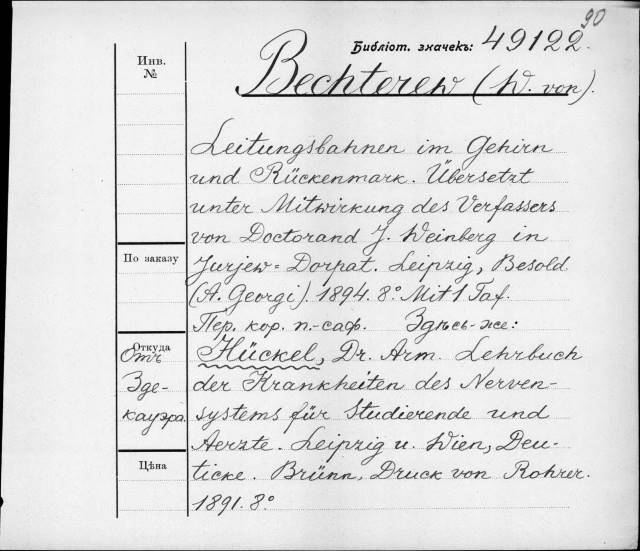 90
Библіот. значекъ: 49122.
Инв.
№
Bechterew (W. von).
Leitungsbahnen im Gehirn
und Rückenmark. Übersetzt
unter Mitwirkung des Verfassers
von Doctorand J. Weinberg in
По заказу
Jurjew-Dorpat. Leipzig, Besold
(A. Georgi). 1894. 8º. Mit 1 Taf.
Пер. кор. п.-саф. Здѣсь-же:
Откуда
Отъ
Зде-
кауэра.
Hückel, Dr. Arm. Lehrbuch
der Krankheiten des Nerven-
systems für Studierende und
Aerzte. Leipzig u. Wien, Deu-
Цѣна
ticke. Brünn, Druck von Rohrer.
1891. 8º